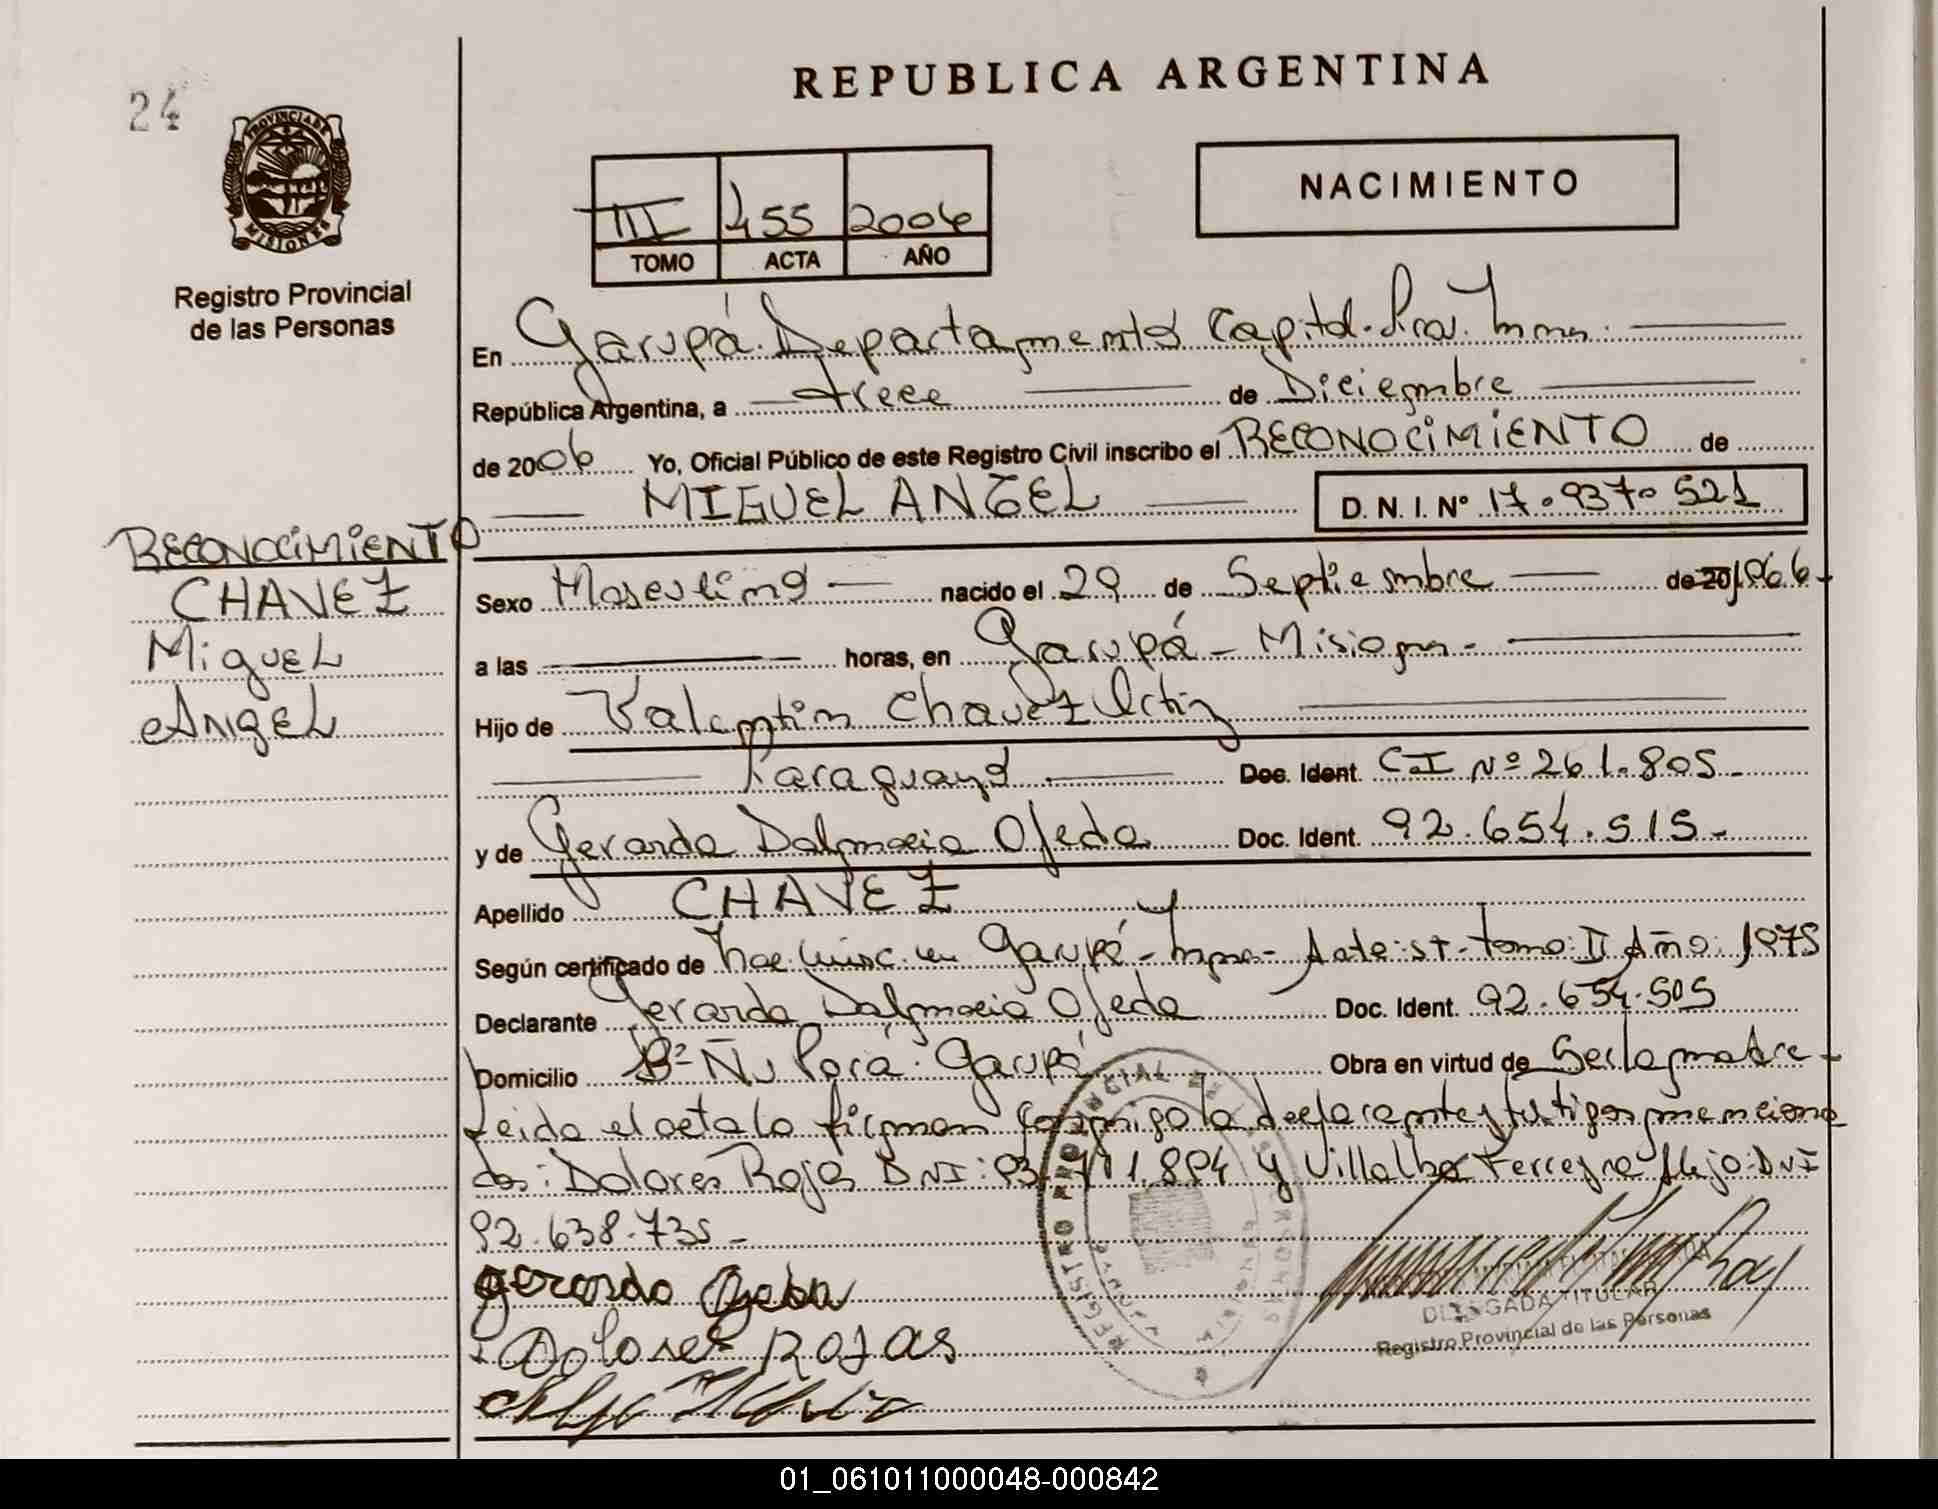 24
REPUBLICA ARGENTINA
PROVINCIA DE
MISIONES
Registro Provincial
de las Personas
III 455 2006
TOMO ACTA AÑO
NACIMIENTO
En Garupá. Departamento Capital.
República Argentina, a trece de Diciembre
de 2006 Yo, Oficial Público de este Registro Civil inscribo el RECONOCIMIENTO de
MIGUEL ANGEL D. N. I. Nº 17.937.521
RECONOCIMIENTO
CHAVEZ
Miguel
Angel
Sexo Masculino nacido el 29 de Septiembre de 20 1966
a las horas, en Garupá - Misiones -
Hijo de Valentin Chavez Ortiz
Paraguayo Doc. Ident. C I Nº 261.805 -
y de Gerarda Dalmacia Ojeda Doc. Ident. 92.654.515 -
Apellido CHAVEZ
Según certificado de Nac. insc. en Garupá - Tomo: II Año: 1975
Declarante Gerarda Dalmacia Ojeda Doc. Ident. 92.654.505
Domicilio Bº Ñu Porá. Garupá Obra en virtud de Ser la madre -
Leida el acta la firman conmigo la declarante y testigos menciona
dos: Dolores Rojas DNI: 93. 1.894 y Villalba Alejo: DNI
92.638.735 -
gerarda Ojeda
Dolores ROJAS
REGISTRO PROVINCIAL DE LAS PERSONAS
DELEGADA TITULAR
Registro Provincial de las Personas
01_061011000048-000842